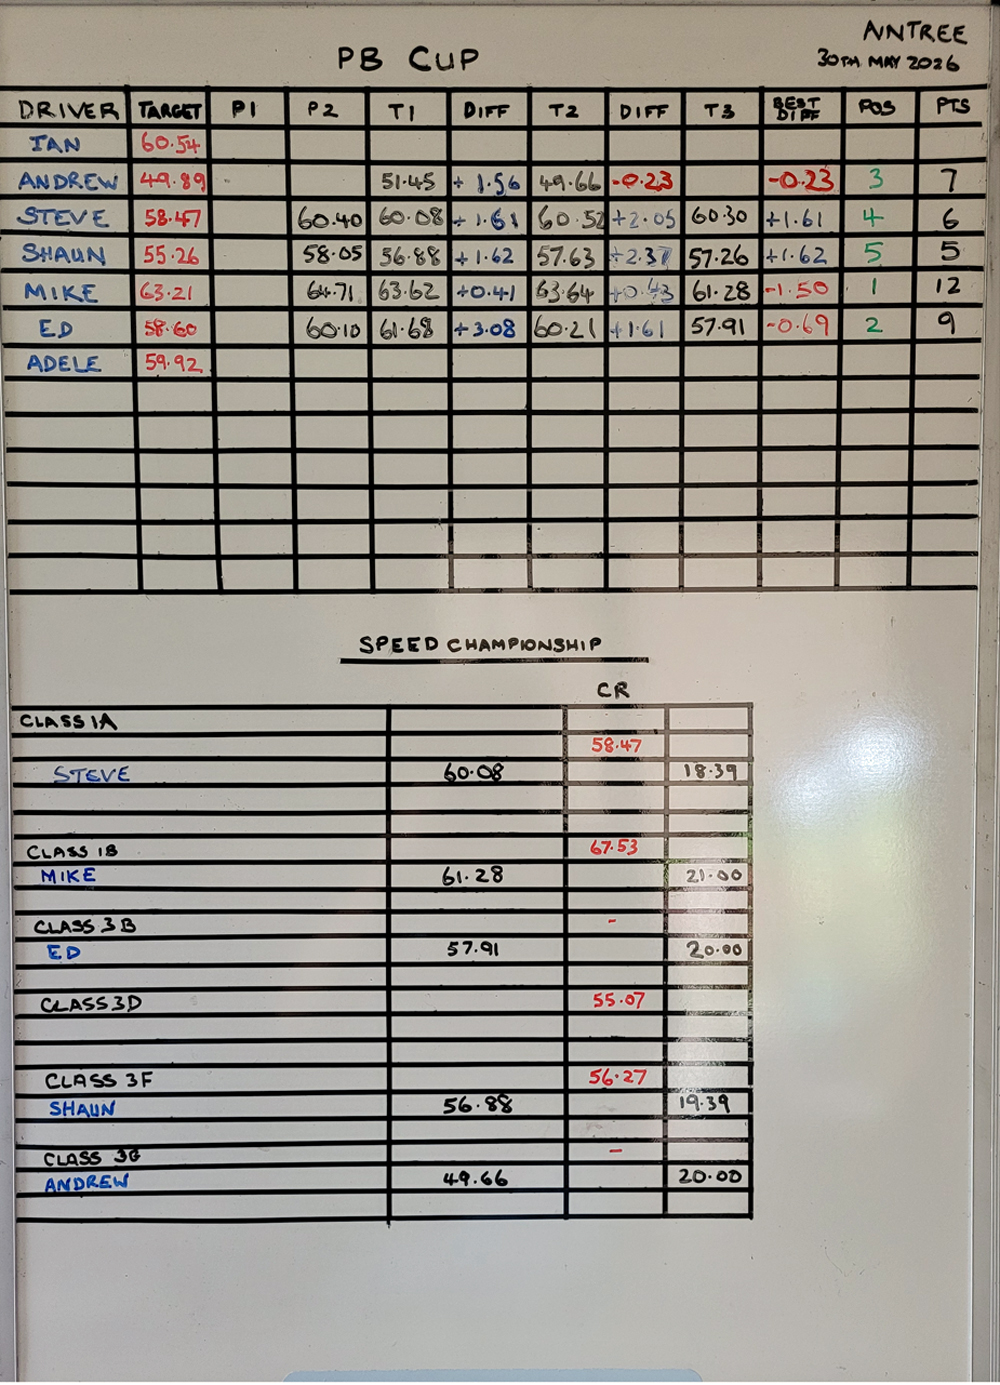 AINTREE
PB CUP 30TH MAY 2026
DRIVER TARGET P1 P2 T1 DIFF T2 DIFF T3 BEST DIFF POS PTS
IAN 60.54
ANDREW 49.89 51.45 + 1.56 49.66 -0.23 -0.23 3 7
STEVE 58.47 60.40 60.08 + 1.61 60.52 +2.05 60.30 +1.61 4 6
SHAUN 55.26 58.05 56.88 + 1.62 57.63 +2.37 57.26 +1.62 5 5
MIKE 63.21 64.71 63.62 +0.41 63.64 +0.43 61.28 -1.50 1 12
ED 58.60 60.10 61.68 + 3.08 60.21 +1.61 57.91 -0.69 2 9
ADELE 59.92
SPEED CHAMPIONSHIP
CR
CLASS 1A
58.47
STEVE 60.08 18.39
CLASS 1B 67.53
MIKE 61.28 21.00
CLASS 3B -
ED 57.91 20.00
CLASS 3D 55.07
CLASS 3F 56.27
SHAUN 56.88 19.39
CLASS 3G -
ANDREW 49.66 20.00